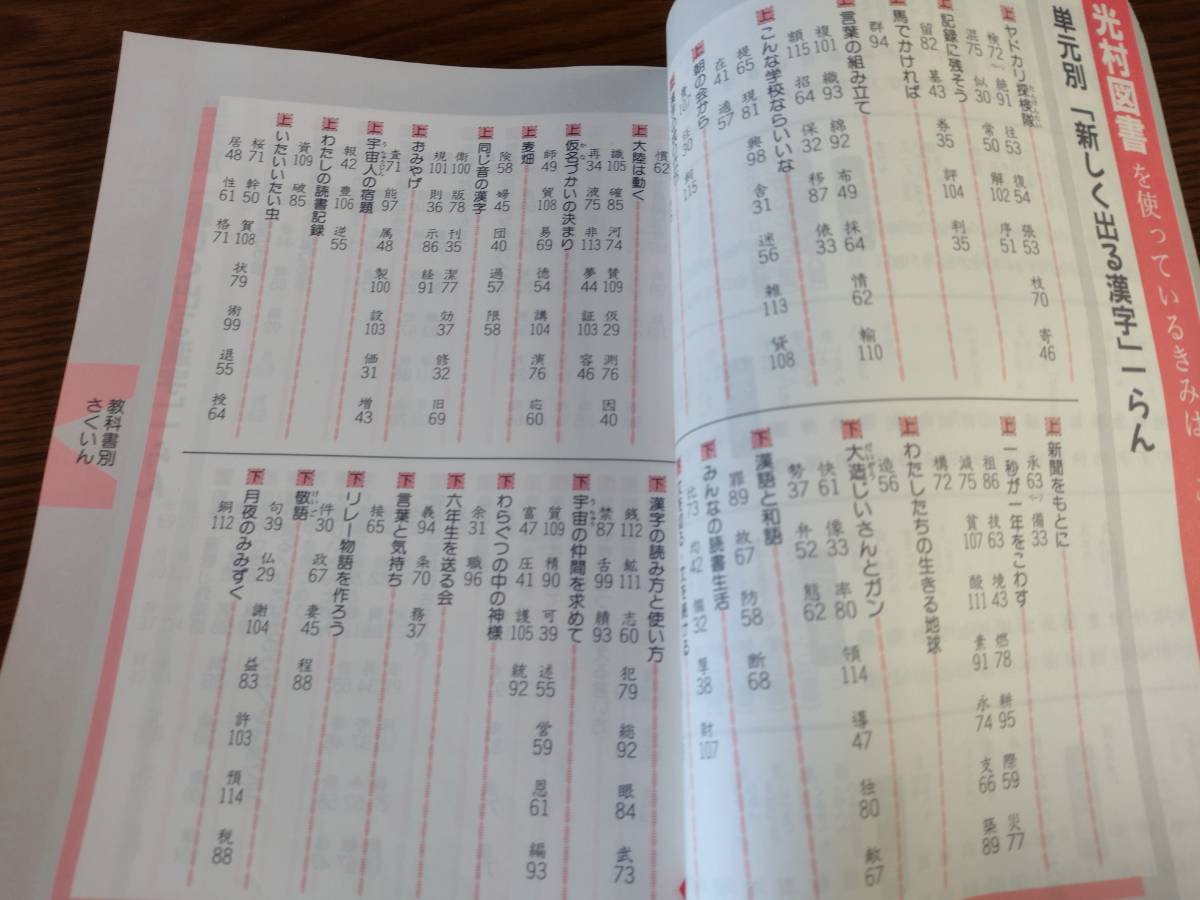 光村図書を使っているきみは
単元別「新しく出る漢字」一らん
上 ヤドカリ探検隊
検72 絶91 往53 復54 張53 枝70 寄46
混75 似30 常50 解102 序51
上 記録に残そう
留82 墓43 券35 評104 判35
上 馬でかければ
群94
上 言葉の組み立て
複101 織93 綿92 布49 抹64 情62 輸110
額115 招64 保32 移87 俵33
上 こんな学校ならいいな
提65 現81 興98 舎31 迷56 雑113 貸108
在41 適57
上 朝の会から
慣62
上 大陸は動く
識105 確85 河74 賛109 仮29 測76 因40
再34 液75 非113 夢44 証103 容46
上 仮名づかいの決まり
師49 貿108 易69 徳54 講104 演76 応60
上 麦畑
険58 婦45 団40 過57 限58
上 同じ音の漢字
衛100 版78 刊35 潔77 効37 修32 旧69
規101 則36 示86 経91
上 おみやげ
査71 能97 属48 製100 設103 価31 増43
上 宇宙人の宿題
報42 豊106 逆55
上 わたしの読書記録
資109 破85
上 いたいいたい虫
桜71 幹50 賀108 状79 術99 退55 授64
居48 性61 格71
上 新聞をもとに
永63 備33
上 一秒が一年をこわす
祖86 技63 境43 燃78 耕95 際59 災77
減75 貧107 酸111 素91 永74 支66 築89
構72
上 わたしたちの生きる地球
造56
下 大造じいさんとガン
快61 像33 率80 領114 導47 独80 敵67
勢37 弁52 態62
下 漢語と和語
罪89 故67 防58 断68
下 みんなの読書生活
比73 均42 個32 厚38 財107
下 漢字の読み方と使い方
銭112 鉱111 志60 犯79 総92 眼84 武73
禁87 舌99 績93
下 宇宙の仲間を求めて
質109 精90 可39 述55 営59 恩61 編93
富47 圧41 護105 統92
下 わらぐつの中の神様
余31 職96
下 六年生を送る会
義94 条70 務37
下 言葉と気持ち
接65
下 リレー物語を作ろう
件30 政67 妻45 程88
下 敬語
句39 仏29 謝104 益83 許103 預114 税88
下 月夜のみみずく
銅112
教科書別
さくいん